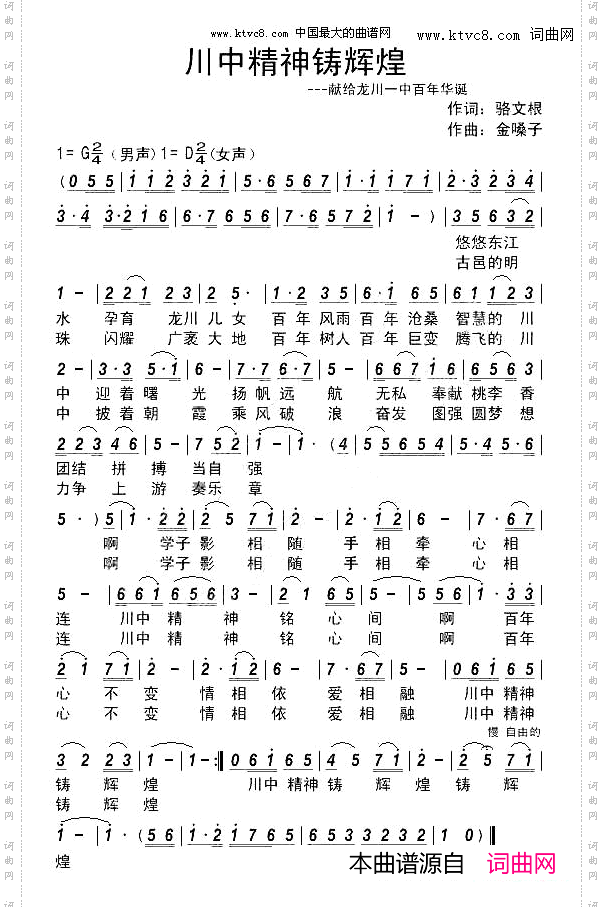 www.ktvc8.com 中国最大的曲谱网
www.ktvc8.com 词曲网
川中精神铸辉煌
---献给龙川一中百年华诞
作词：骆文根
作曲：金嗓子
1=G2/4（男声）1=D2/4（女声）
(0 5 5 | 1 1 2 3 2 1 | 5·6 5 6 7 | 6·7 6 5 1 7 | 2·3 2 3 4 |
3·4 3·2 1 6 | 6·7 6 7 2 | 7·6 5 6 7 2 | 1 -) | 3 5 6 3 2 |
悠悠东江
古邑的明
1 - | 2 2 2 1 | 2 3 2 | 2 5· | 1·2 3 5 | 2 3 5 | 6·1 6 5 | 6 1 1 2 3 |
水 孕育 龙川儿女 百年风雨百年沧桑 智慧的川
珠 闪耀 广袤大地 百年树人百年巨变 腾飞的川
2 - | 3·3 5·5 | 6 - | 1·6 6 | 7·6 7 | 5 - | 6 6 1 1 | 2 1 7 6 |
中 迎着曙 光 扬帆远 航 无私 奉献桃李香
中 披着朝 霞 乘风破 浪 奋发 图强圆梦想
2 2 3 4 6 | 5 - | 7 5 2 | 1 - | 1 - | (4 | 5 5 6 5 4 | 5·4 | 5·6 |
团结 拼搏 当自强
力争 上游 奏乐章
5·) 5 | 1·2 2 | 2 7 1 | 2 - | 2·1 2 | 6 - | 7·6 7 |
啊 学子影 相随 手相牵 心相
啊 学子影 相随 手相牵 心相
5 - | 6 6 1 6 5 6 | 3 - | 2·3 | 5·6 | 1 - | 5 - | 5 6 7 |
连 川中精 神 铭 心 间 啊 百年
连 川中精 神 铭 心 间 啊 百年
2 1 7 1 | 2 - | 2·1 2 | 6 - | 7·6 7 | 5 - | 0 6 1 6 5 |
心 不变 情相依 爱相融 川中精神
心 不变 情相依 爱相融 川中精神
慢 自由的
3 2 | 2 2 | 1 - | 1 - :| 0 6 1 6 5 | 4·6 | 2 - | 2 5 7 1 |
铸 辉煌 川中精神铸 辉煌铸 辉
铸 辉煌
1 - | 1 - | (5 6 | 1·2 1 7 6 5 | 6 5 6 3 2 | 1 0) ‖
煌
本曲谱源自 词曲网
词曲网